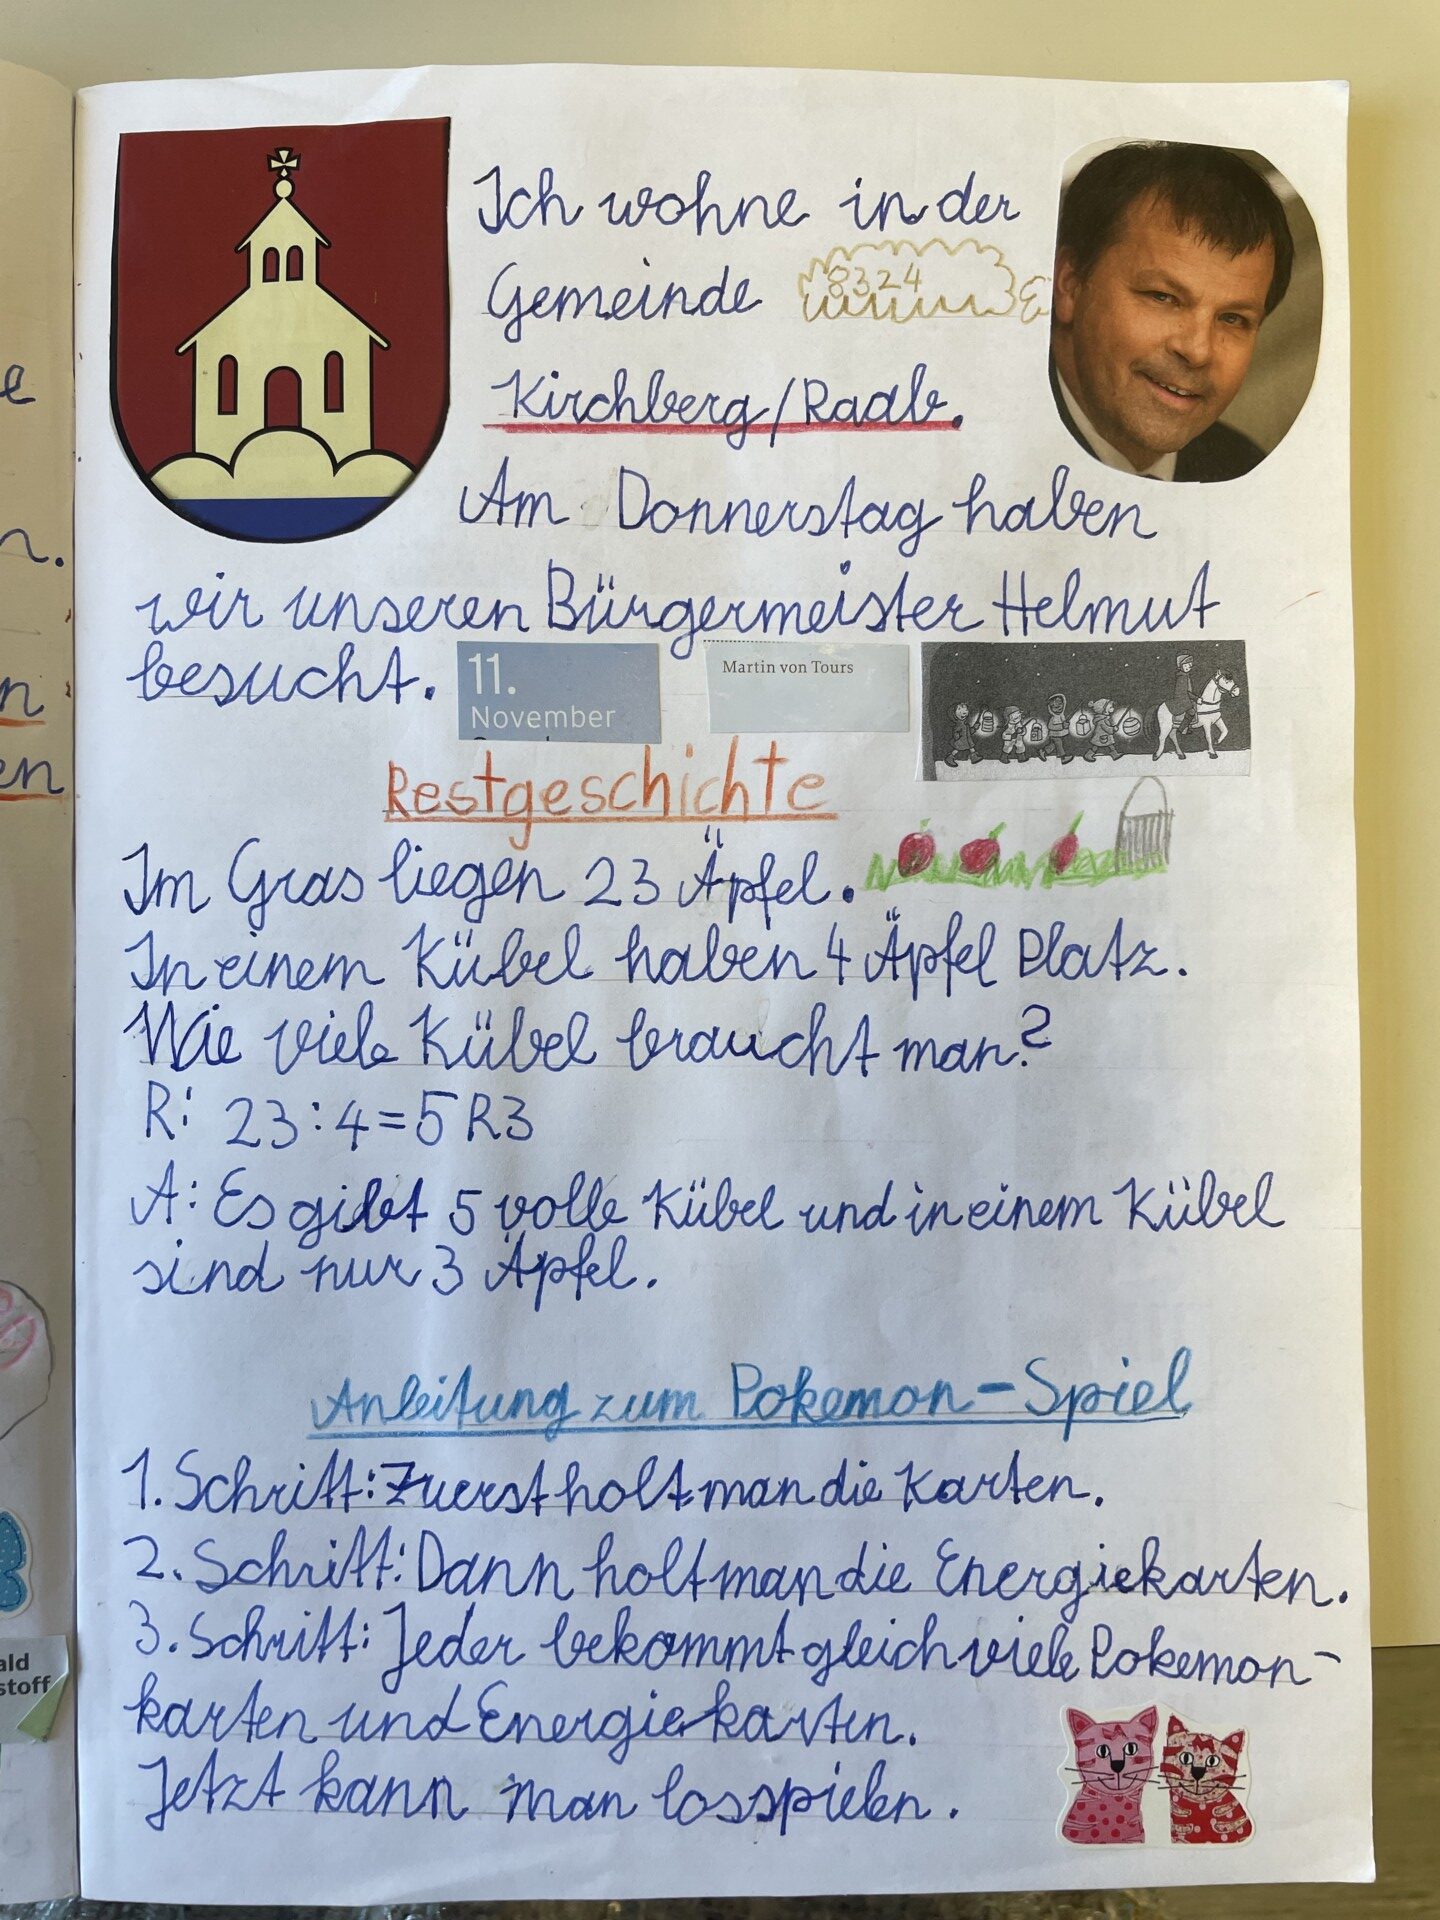 Ich wohne in der
Gemeinde 8324
Kirchberg/Raab.
Am Donnerstag haben
wir unseren Bürgermeister Helmut
besucht.
11.
November
Martin von Tours
Restgeschichte
Im Gras liegen 23 Äpfel.
In einem Kübel haben 4 Äpfel Platz.
Wie viele Kübel braucht man?
R: 23:4=5 R3
A: Es gibt 5 volle Kübel und in einem Kübel
sind nur 3 Äpfel.
Anleitung zum Pokemon-Spiel
1. Schritt: Zuerst holt man die Karten.
2. Schritt: Dann holt man die Energiekarten.
3. Schritt: Jeder bekommt gleich viele Pokemon-
karten und Energiekarten.
Jetzt kann man losspielen.
e
n.
n
en
ald
stoff